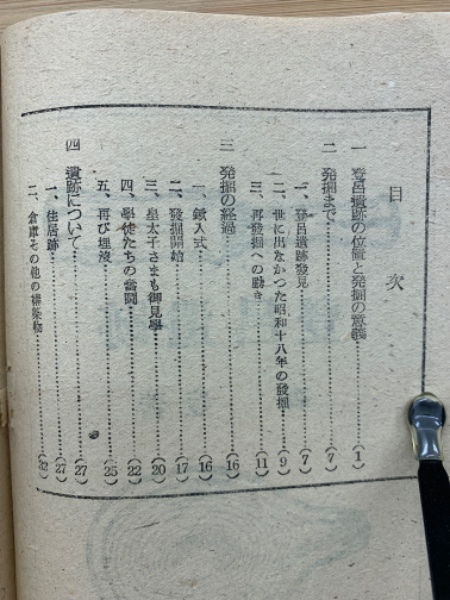 目次
一 登呂遺跡の位置と発掘の意義……(1)
二 発掘まで……(7)
一、登呂遺跡発見……(7)
二、世に出なかつた昭和十八年の發掘……(9)
三、再發掘への動き……(11)
三 発掘の経過……(16)
一、鍬入式……(16)
二、發掘開始……(17)
三、皇太子さまも御見學……(20)
四、學徒たちの奮闘……(22)
五、再び埋沒……(25)
四 遺跡について……(27)
一、住居跡……(27)
二、倉庫その他の構築物……(32)